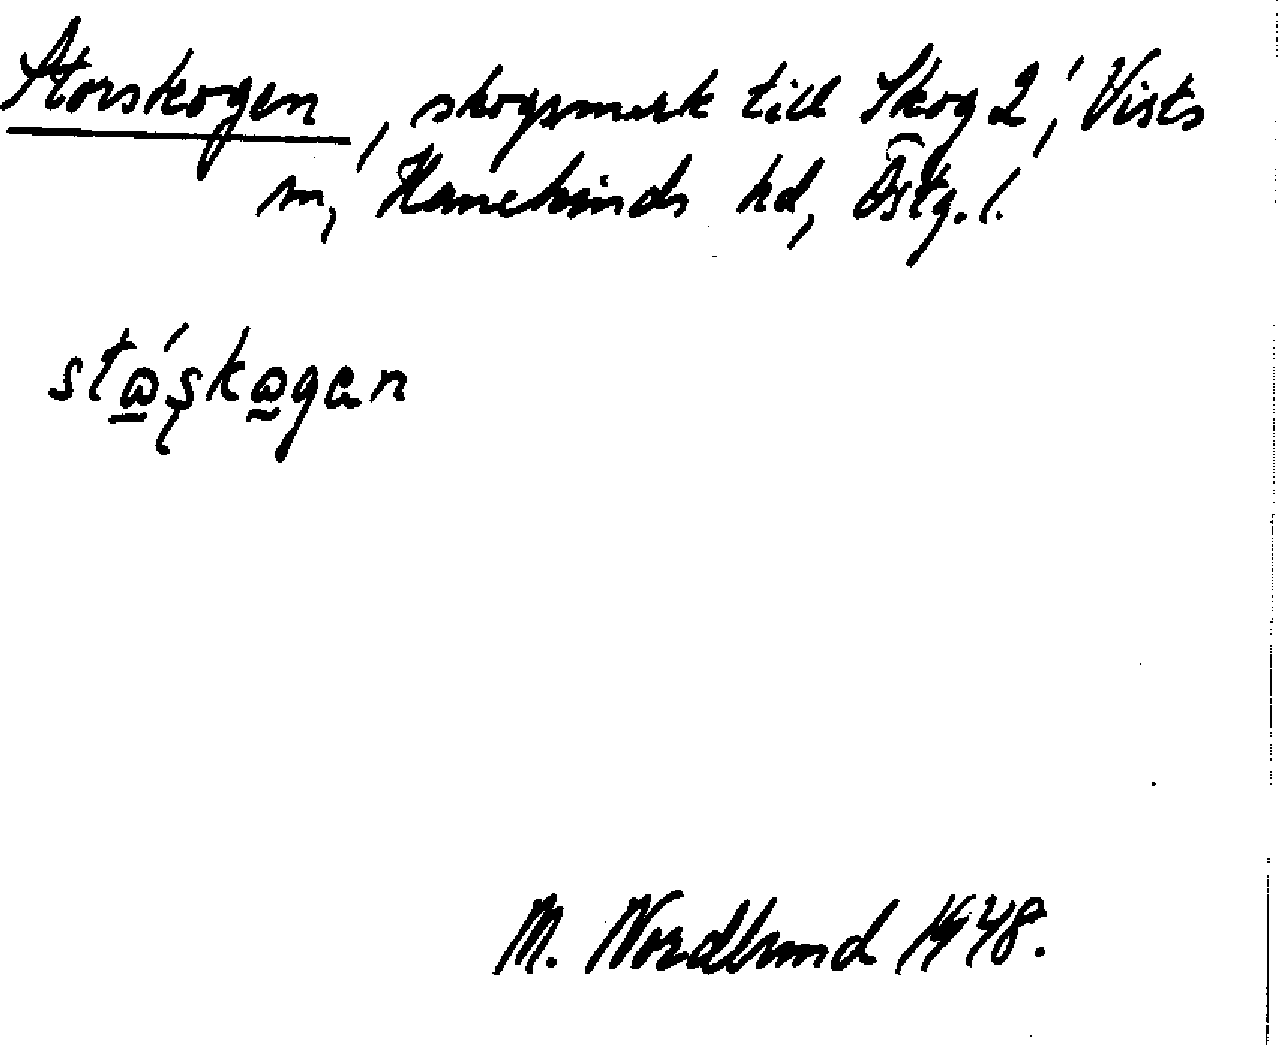 Storskogen, skogsmark till Skog 2, Vists
sn, Hanekinds hd, Östg. l.
stώ̲ʂkω̲gən
M. Nordlund 1948.